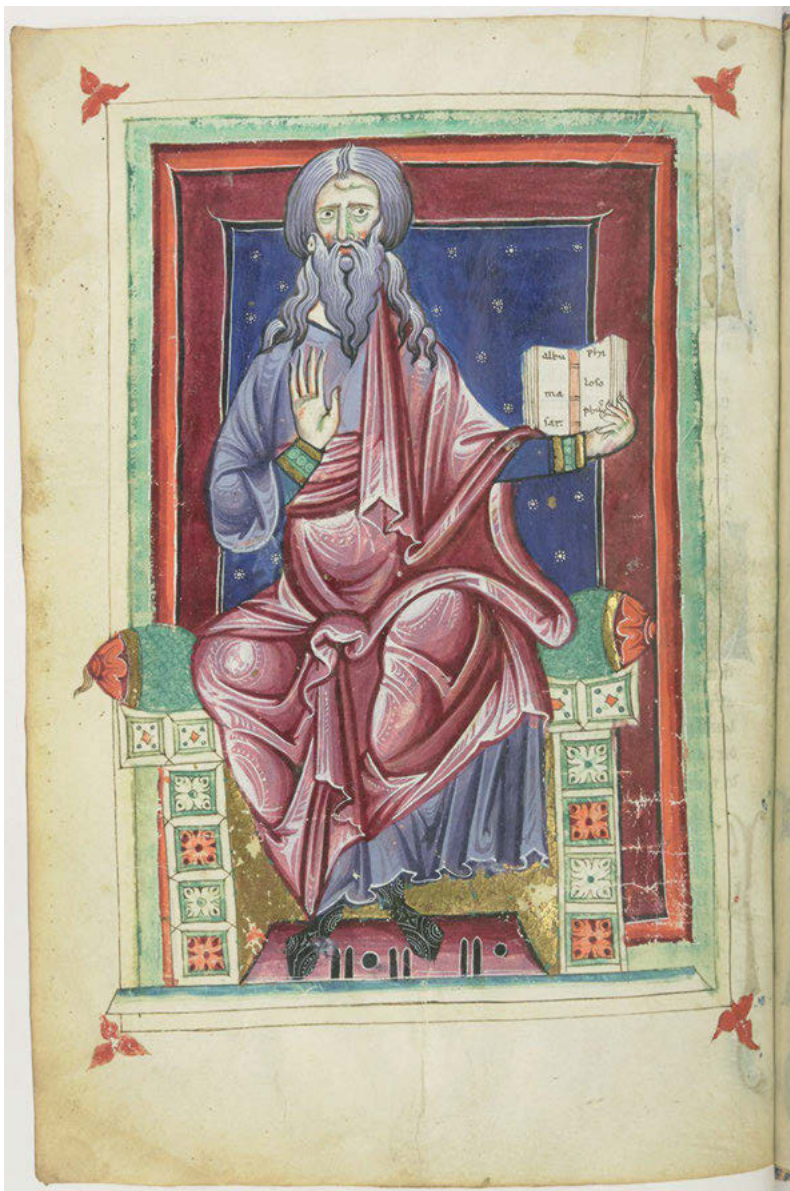 albu
ma
sar.
phi
loso
phus